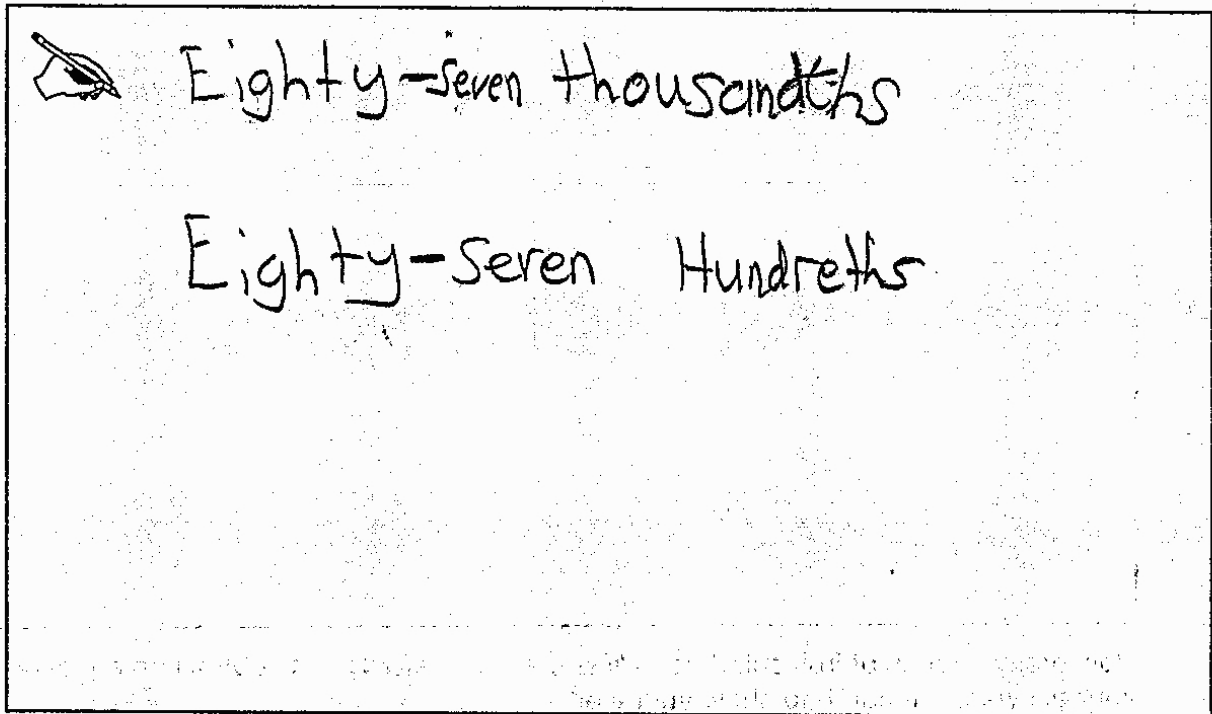 Eighty-seven thousandths
Eighty-Seven Hundreths